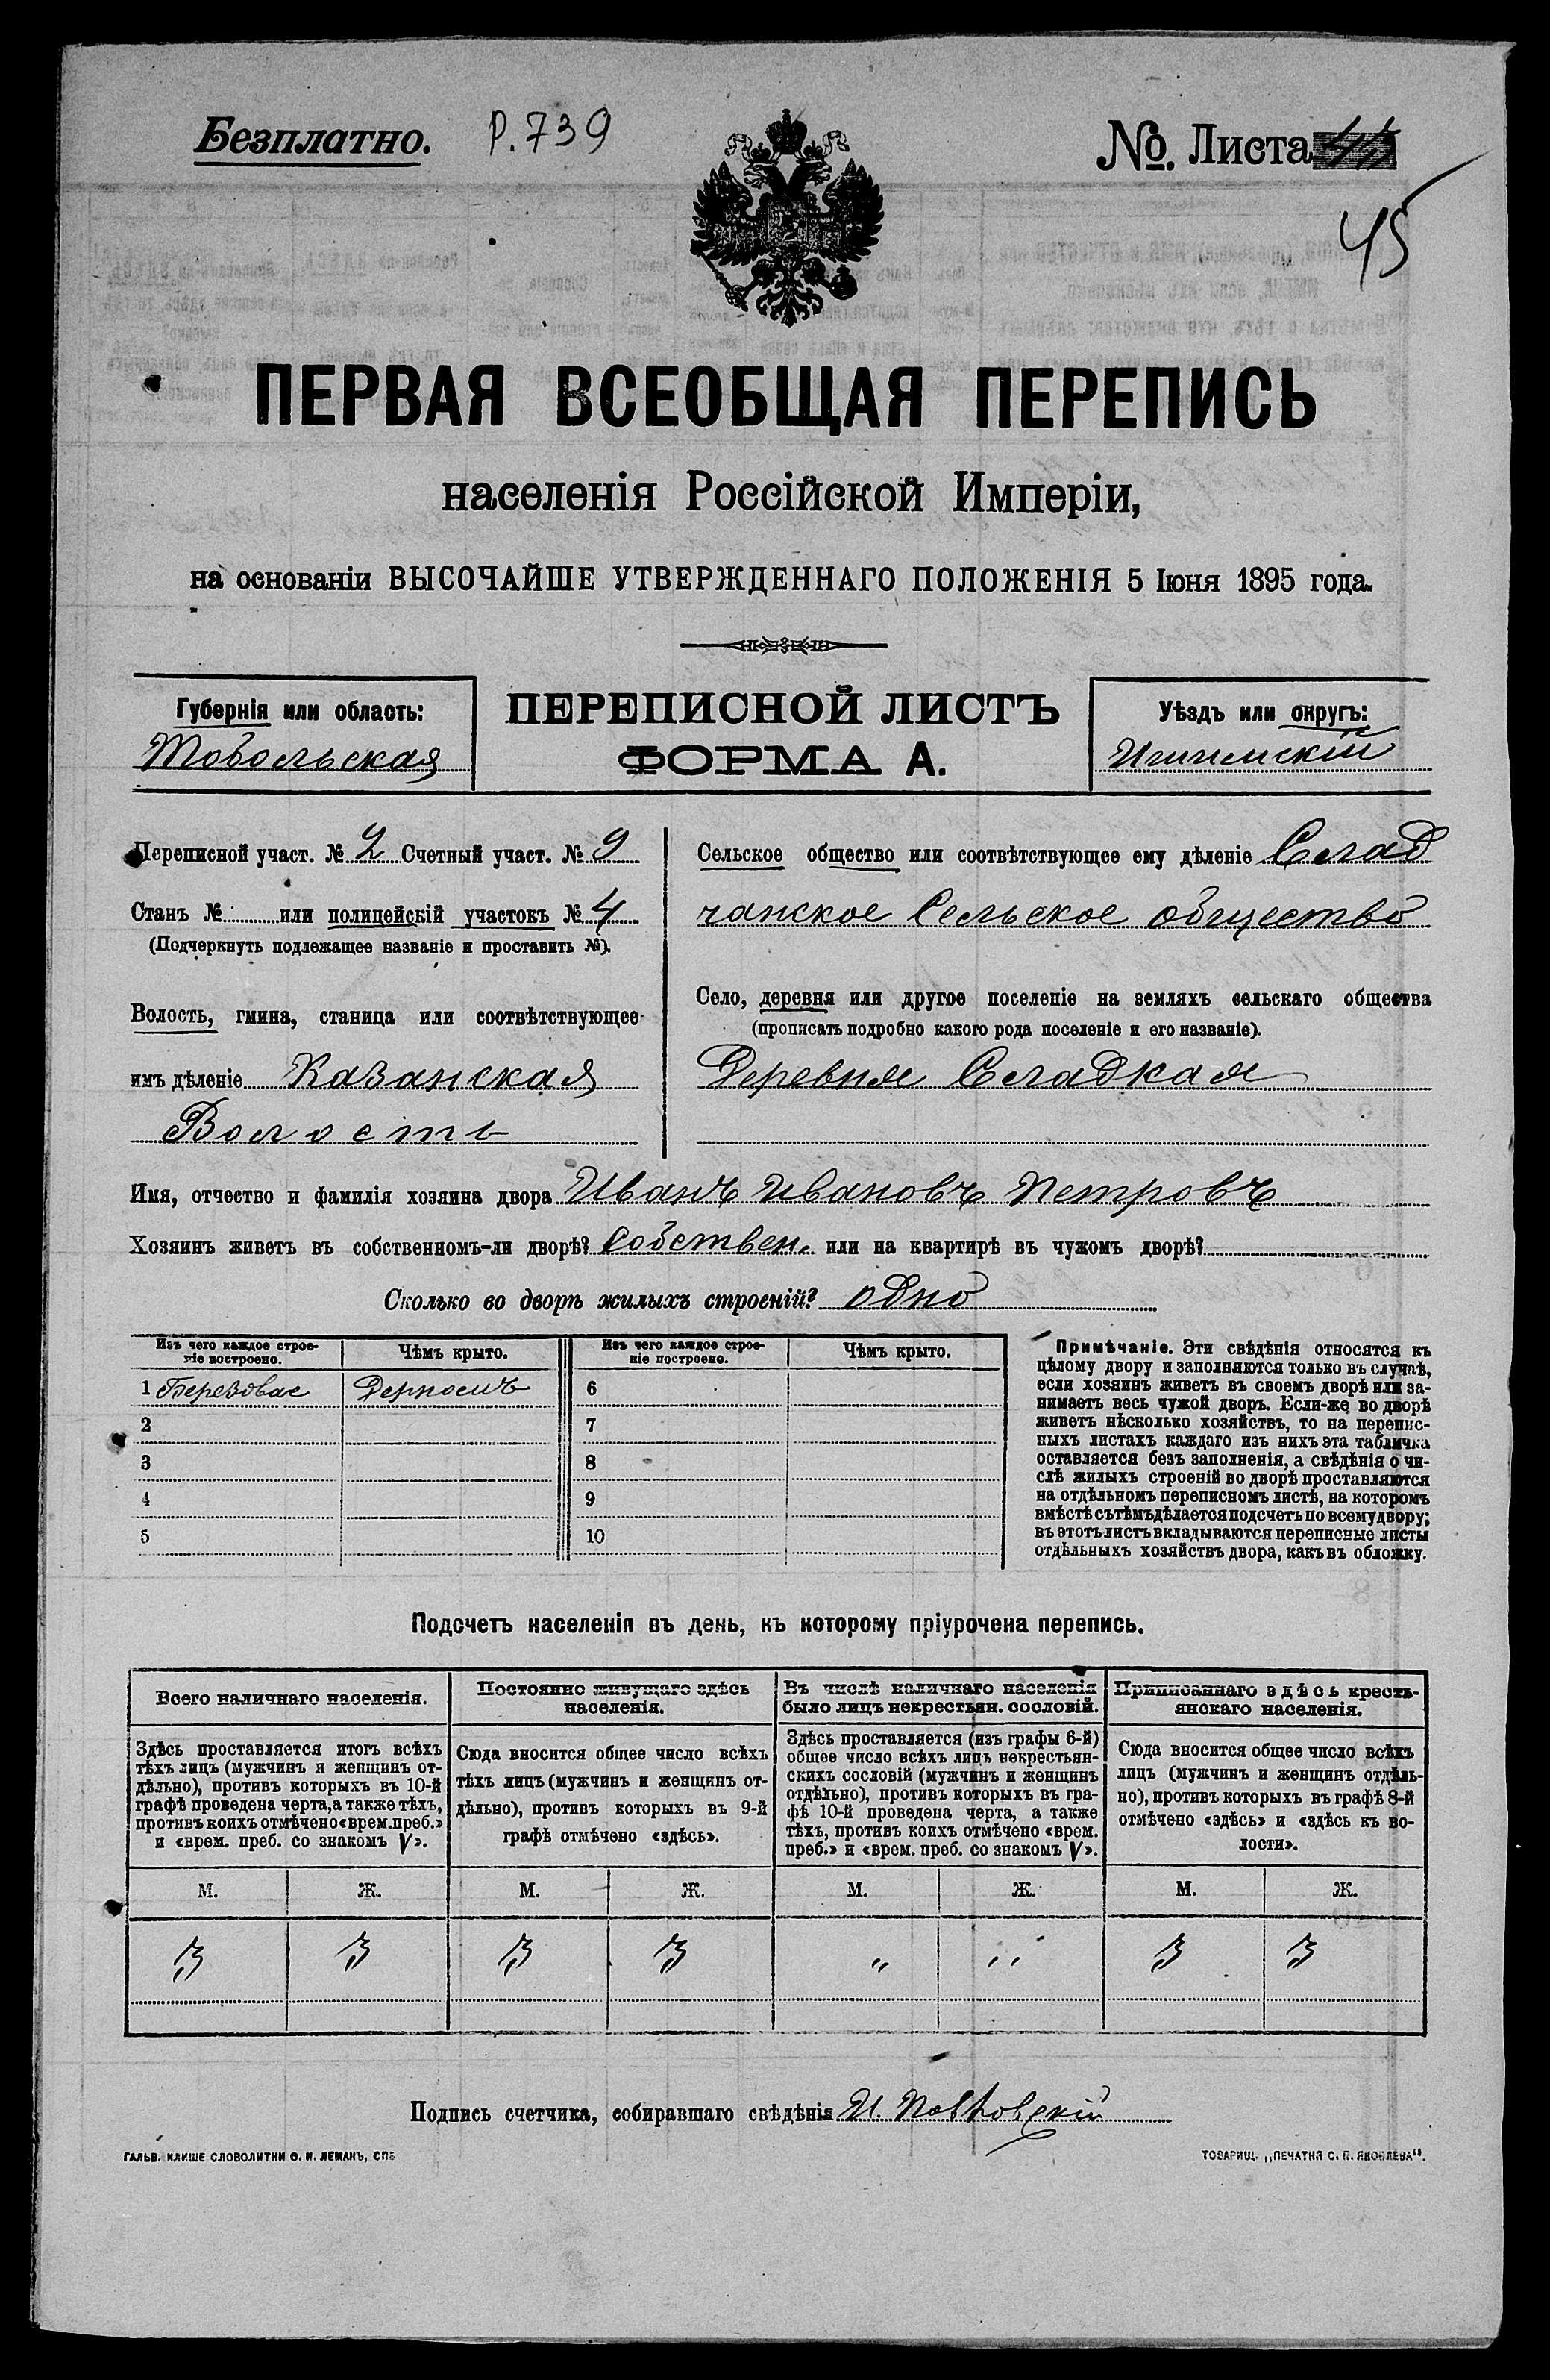 Безплатно. Р. 739
№. Листа
45
ПЕРВАЯ ВСЕОБЩАЯ ПЕРЕПИСЬ
населенія Россійской Имперіи,
на основаніи ВЫСОЧАЙШЕ УТВЕРЖДЕННАГО ПОЛОЖЕНІЯ 5 Іюня 1895 года.
Губернія или область:
Тобольская
ПЕРЕПИСНОЙ ЛИСТЪ
ФОРМА А.
Уѣздъ или округъ:
Ишимскій
Переписной участ. № 2 Счетный участ. № 9
Станъ № или полицейскій участокъ № 4
(Подчеркнуть подлежащее названіе и проставить №).
Волость, гмина, станица или соотвѣтствующее
имъ дѣленіе Казанская
Волость
Сельское общество или соотвѣтствующее ему дѣленіе Слад
чанское Сельское общество
Село, деревня или другое поселеніе на земляхъ сельскаго общества
(прописать подробно какого рода поселеніе и его названіе).
Деревня Сладкая
Имя, отчество и фамилія хозяина двора Иванъ Ивановъ Петровъ
Хозяинъ живетъ въ собственномъ-ли дворѣ? Собствен. или на квартирѣ въ чужомъ дворѣ?
Сколько во дворѣ жилыхъ строеній? одно
Изъ чего каждое строе-
ніе построено.
Чѣмъ крыто.
Изъ чего каждое строе-
ніе построено.
Чѣмъ крыто.
1 Березовае Дерномъ 6
2 7
3 8
4 9
5 10
Примѣчаніе. Эти свѣдѣнія относятся къ
цѣлому двору и заполняются только въ случаѣ,
если хозяинъ живетъ въ своемъ дворѣ или за-
нимаетъ весь чужой дворъ. Если-же во дворѣ
живетъ нѣсколько хозяйствъ, то на перепис-
ныхъ листахъ каждаго изъ нихъ эта табличка
оставляется безъ заполненія, а свѣдѣнія о чи-
слѣ жилыхъ строеній во дворѣ проставляются
на отдѣльномъ переписномъ листѣ, на которомъ
вмѣстѣ съ тѣмъ дѣлается подсчетъ по всему двору;
въ этотъ листъ вкладываются переписные листы
отдѣльныхъ хозяйствъ двора, какъ въ обложку.
Подсчетъ населенія въ день, къ которому пріурочена перепись.
Всего наличнаго населенія.
Здѣсь проставляется итогъ всѣхъ
тѣхъ лицъ (мужчинъ и женщинъ от-
дѣльно), противъ которыхъ въ 10-й
графѣ проведена черта, а также тѣхъ,
противъ коихъ отмѣчено «врем. преб.»
и «врем. преб. со знакомъ V».
Постоянно живущаго здѣсь
населенія.
Сюда вносится общее число всѣхъ
тѣхъ лицъ (мужчинъ и женщинъ от-
дѣльно), противъ которыхъ въ 9-й
графѣ отмѣчено «здѣсь».
Въ числѣ наличнаго населенія
было лицъ некрестьян. сословій.
Здѣсь проставляется (изъ графы 6-й)
общее число всѣхъ лицъ некрестьян-
скихъ сословій (мужчинъ и женщинъ
отдѣльно), противъ которыхъ въ гра-
фѣ 10-й проведена черта, а также
тѣхъ, противъ коихъ отмѣчено «врем.
преб.» и «врем. преб. со знакомъ V».
Приписаннаго здѣсь кресть-
янскаго населенія.
Сюда вносится общее число всѣхъ
лицъ (мужчинъ и женщинъ отдѣль-
но), противъ которыхъ въ графѣ 8-й
отмѣчено «здѣсь» и «здѣсь къ во-
лости».
М. Ж. М. Ж. М. Ж. М. Ж.
3 3 3 3 " " 3 3
Подпись счетчика, собиравшаго свѣдѣнія И.
ГАЛЬВ. КЛИШЕ СЛОВОЛИТНИ О. И. ЛЕМАНЪ, СПБ
ТОВАРИЩ. „ПЕЧАТНЯ С. П. ЯКОВЛЕВА".